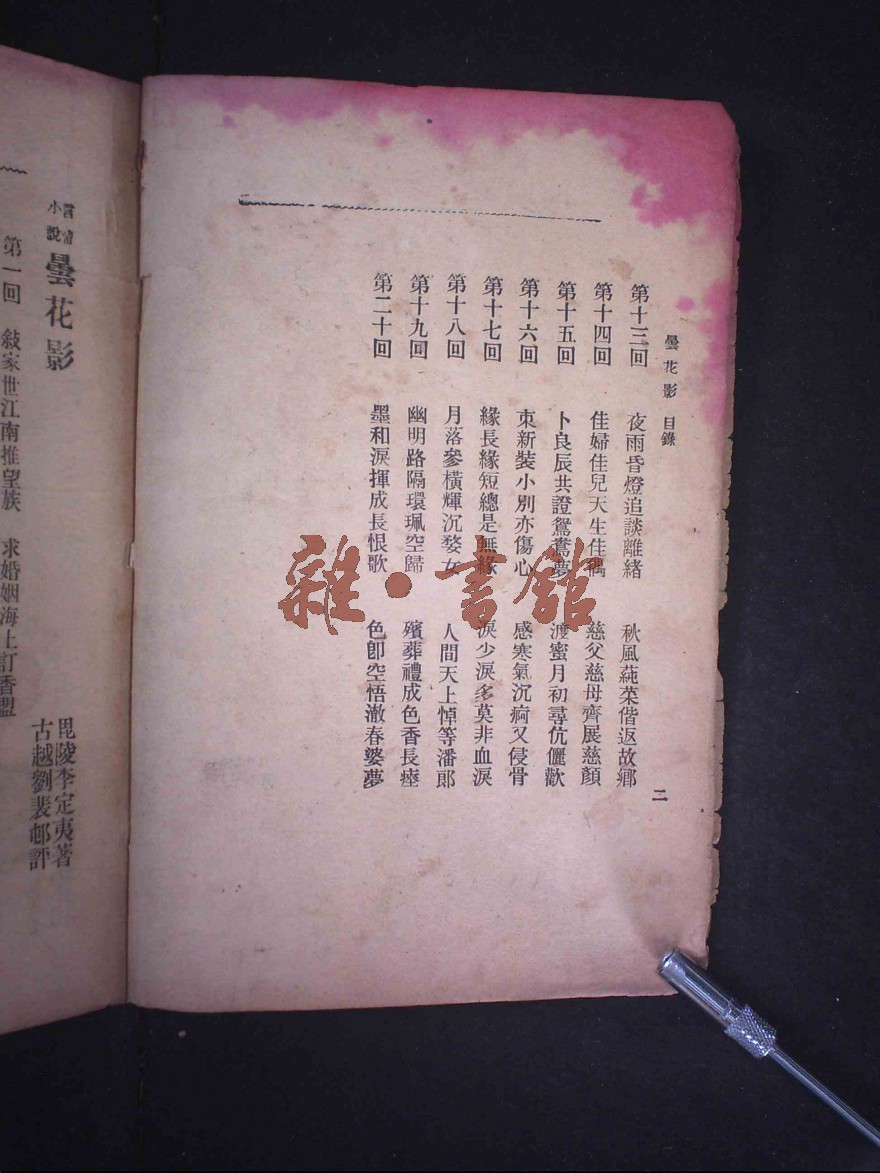 曇花影 目錄
二
第十三回 夜雨昏燈追談離緒 秋風蒓菜偕返故鄉
第十四回 佳婦佳兒天生佳耦 慈父慈母齊展慈顏
第十五回 卜良辰共證鴛鴦夢 渡蜜月初尋伉儷歡
第十六回 束新裝小別亦傷心 感寒氣沉疴又侵骨
第十七回 緣長緣短總是無緣 淚少淚多莫非血淚
第十八回 月落參橫輝沉婺女 人間天上悼等潘郎
第十九回 幽明路隔環珮空歸 殯葬禮成色香長瘞
第二十回 墨和淚揮成長恨歌 色卽空悟澈春婆夢
言情小說 曇花影
毘陵李定夷著
古越劉裴邨評
第一回 敍家世江南推望族 求婚姻海上訂香盟
雜·書館